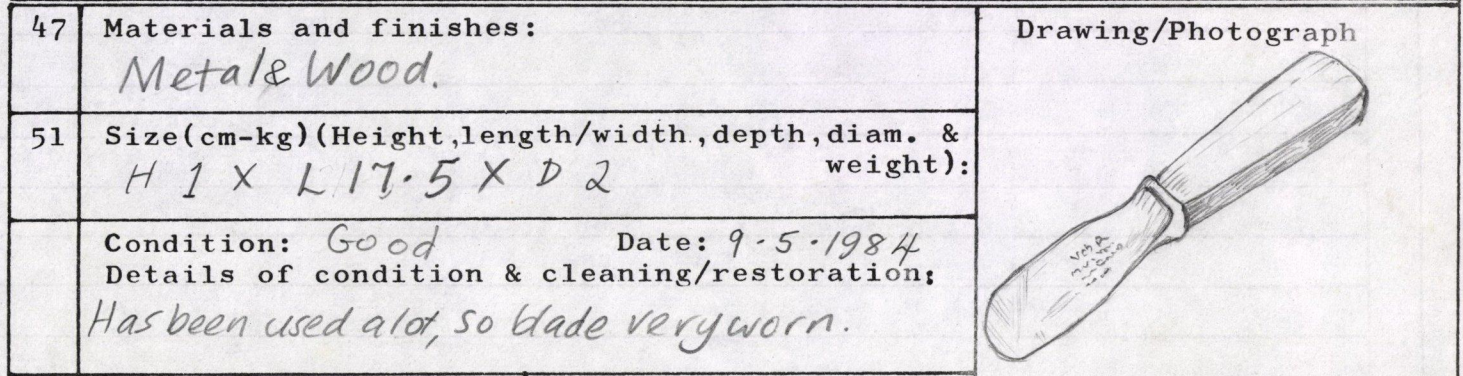 47 Materials and finishes:
Metal & Wood.
51 Size(cm-kg)(Height,length/width,depth,diam. &
weight):
H 1 X L 17.5 X D 2
Condition: Good Date: 9.5.1984
Details of condition & cleaning/restoration:
Has been used a lot, so blade very worn.
Drawing/Photograph